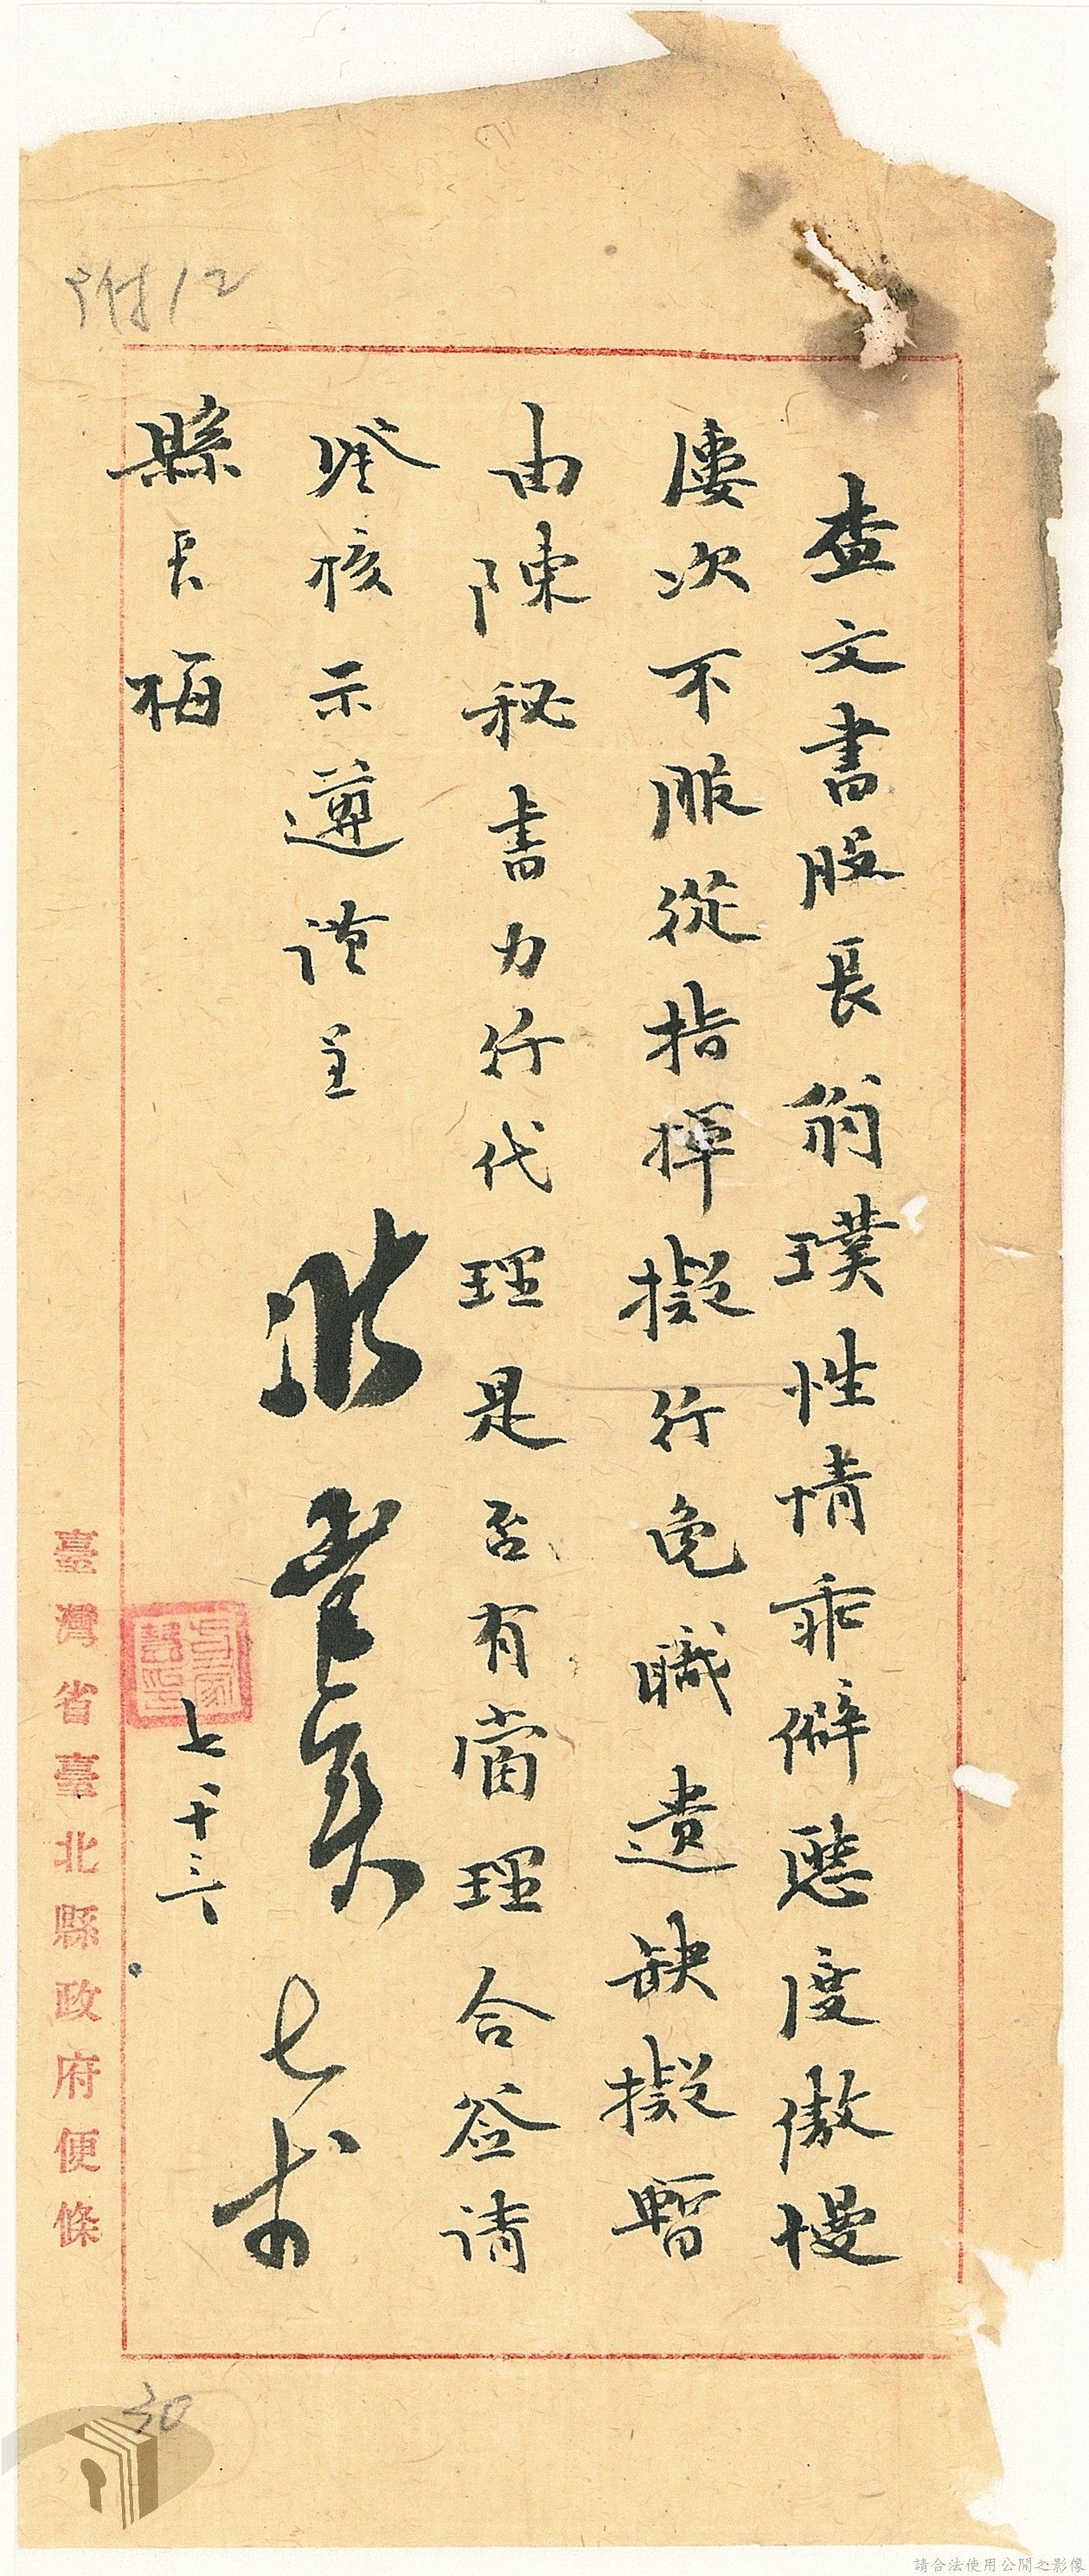 查文書股長翁璞性情乖僻態度傲慢
屢次不服從指揮擬行免職遺缺擬暫
由陳秘書力行代理是否有當理合簽請
鑒核示遵謹呈
縣長梅
七
七 十三
臺灣省臺北縣政府便條
附12
30
請合法使用公開之影像